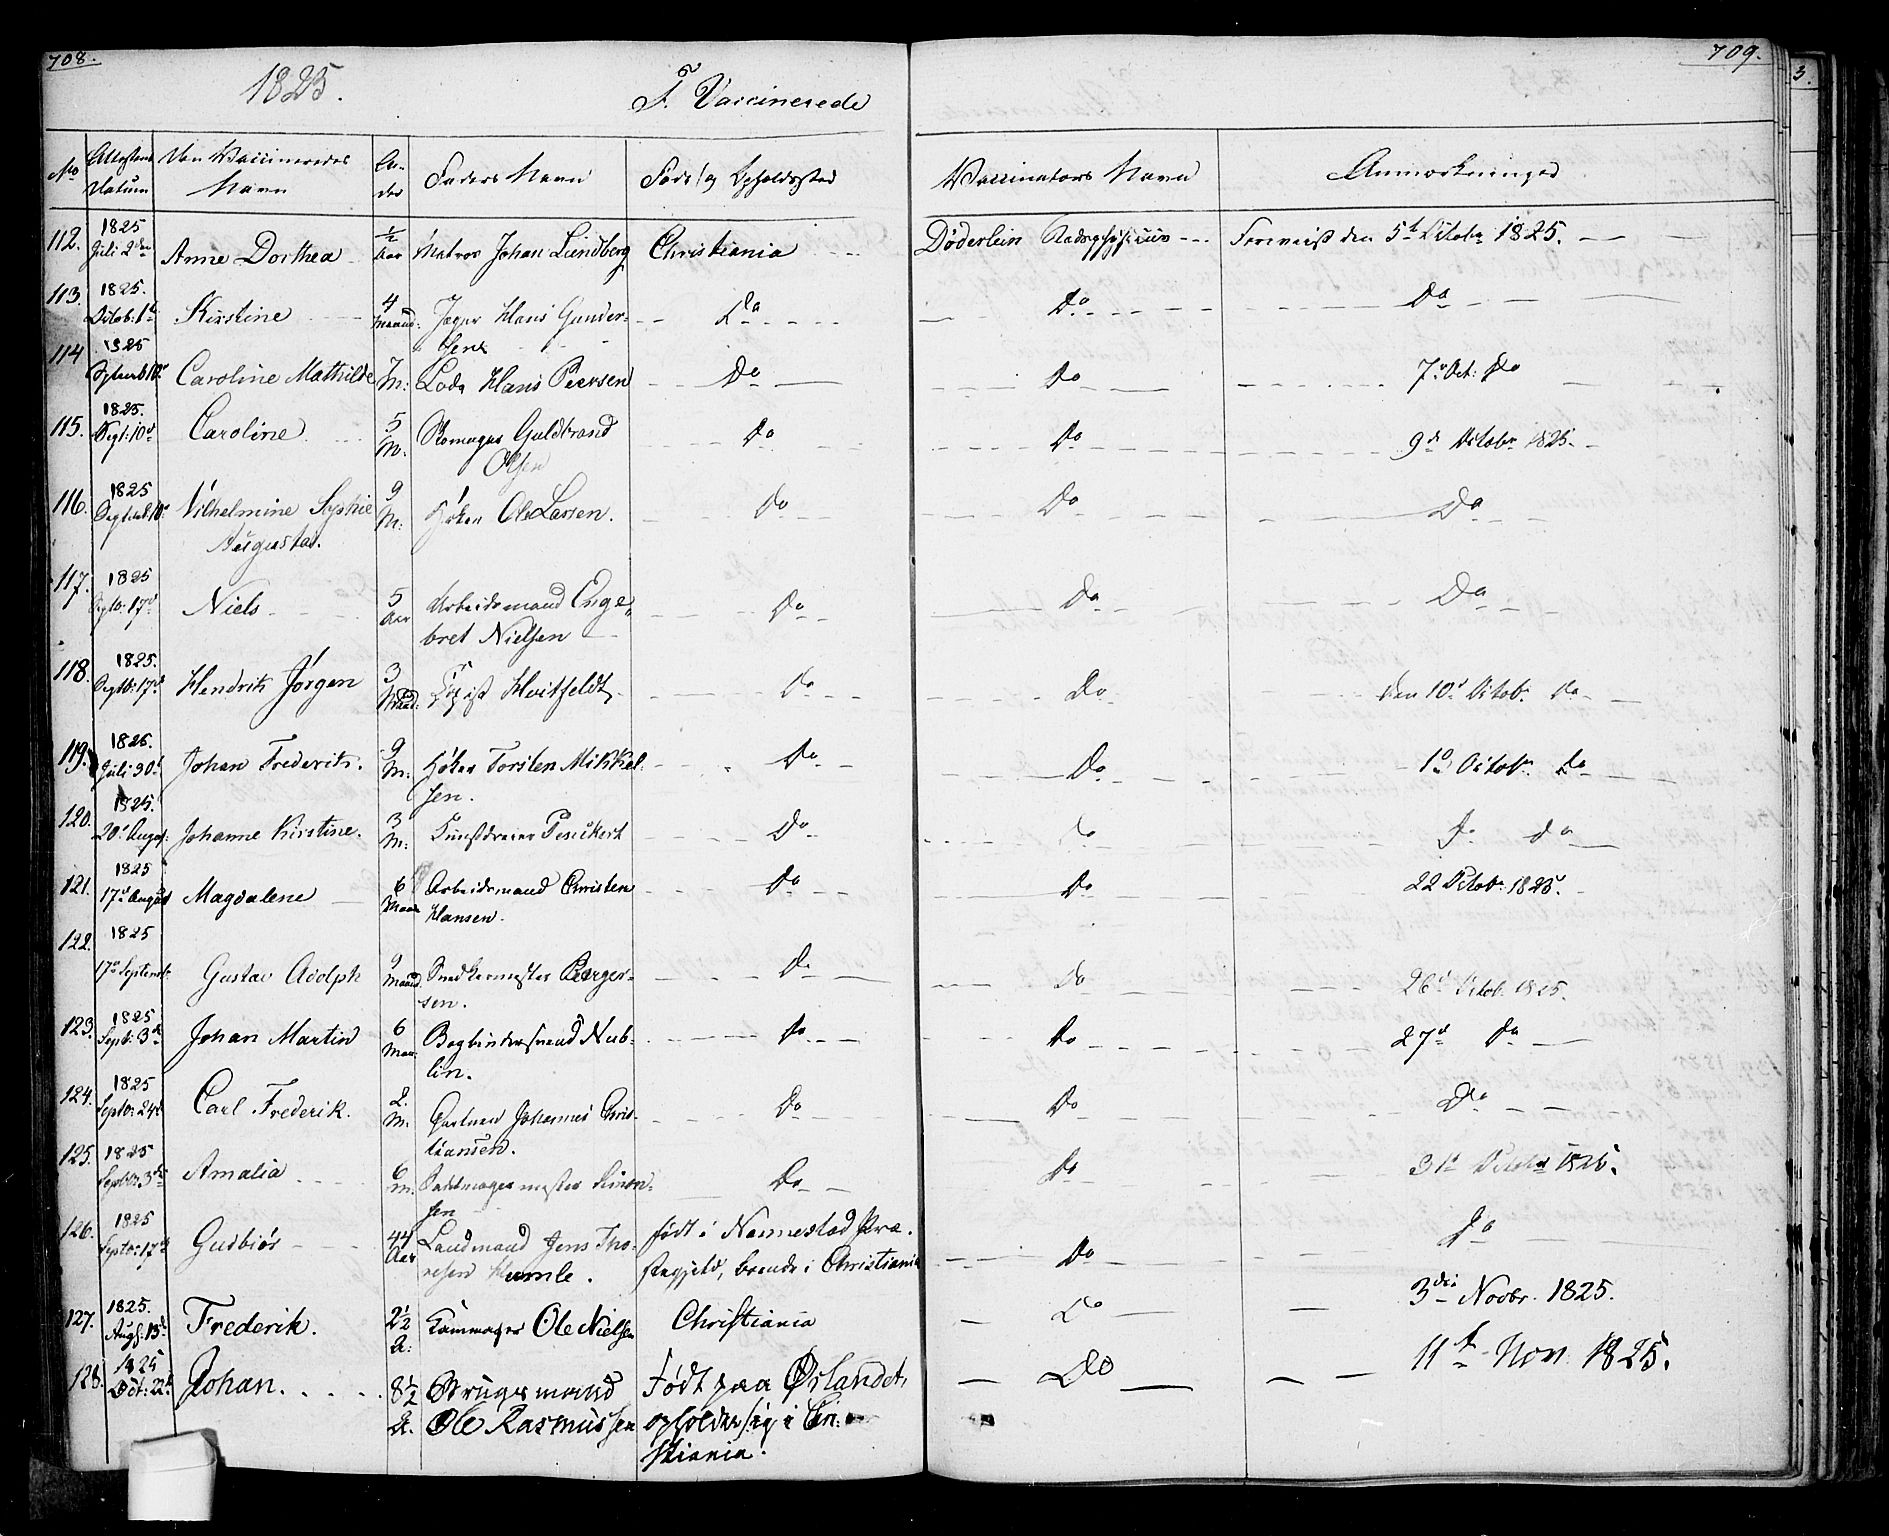 708.
1825.
F. Vaccinerede
709.
No
Attestens Datum
Den Vaccineredes Navn
Al-der
Faders Navn
Føde og Opholdssted
Vaccinators Navn
Anmærkninger
112. 1825 Juli 2den Anne Dorthea ½ Aar Matros Johan Lundberg Christiania Døderlein Foreviist den 5t Octobr 1825.
113. 1825. Octob: 1t Kirstine 4 Maand: Jæger Hans Gunder-
sen Do Do Do
114 1825 Septemb 10d Caroline Mathilde 7 M: Lods Hans Peersen Do Do 7d Oct: Do
115. 1825. Sept: 10d Caroline 5 M. Skomager Guldbrand
Olsen Do Do 9d Octobr 1825.
116. 1825 Septemb. 10d Vilhelmine Sophie
Augusta. 9 M: Høker Ole Larsen. Do Do Do
117. 1825 Septbr. 17d Niels 5 Aar Arbeidsmand Enge-
bret Nielsen Do Do Do
118. 1825. Septb: 17d Hendrik Jørgen 3 Maand: Kopist Hvitfeldt Do Do den 10d Octobr Do
119. 1825. Juli 30d Johan Frederik. 9 M: Høker Torsten Mikkel-
sen. Do Do Octobr. Do
120. 1825. 20d August. Johanne Kirstine. 3 M: Kunstdreier Do Do Do Do
121. 1825 17d August Magdalene 6 Maan Arbeidsmand Christen
Hansen. Do Do 22 Octobr 1825.
122. 1825 17d Septembr Gustav Adolph 9 Maand Snedkermester Barger-
sen. Do Do 26d Octob. 1825.
123. 1825 Sept: 3d Johan Martin 6 Maan. Bogbindersvend Nub-
lin. Do Do 27d Do
124. 1825 Septbr: 24d Carl Frederik. 2. M. Gartner Johannes Chris-
tiansen. Do Do Do
125. 1825 Septbr 3de Amalia 6 M. Sadelmagermester Simon-
sen Do Do 31t Octobr 1825.
126. 1825 Septbr: 17d Gudbiør 44 Aar Landmand Jens Tho-
resen Humle. født i Nannestad Præ-
stegjeld, boende i Christiania Do Do
127. 1825. Aug: 13d Frederik. 2½ A: Kammager Ole Nielsen Christiania Do 3die Novbr. 1825.
128. 1825 Oct: 22d Johan. 8½ A. Brugsmand
Ole Rasmussen Født paa Ørlandet,
opholder sig i Chri-
stiania. Do 11t Nov 1825.
3.